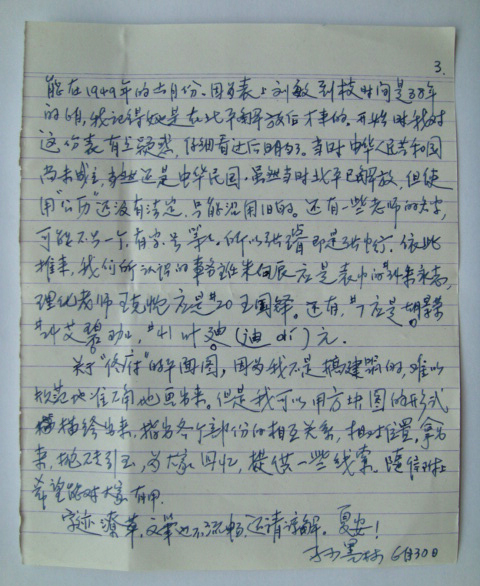 3.
能在1949年的六月份。因为表上刘敏到校时间是38年
的6月,我记得她是在北平解放后才来的。开始时我对
这份表有点疑惑,仔细看过后明白了。当时中华人民共和国
尚未成立,当然还是中华民国。虽然当时北平已解放,但使
用“公历”还没有法定,只能沿用旧的。还有一些老师的名字,
可能不只一个,有字、号等。所以
推来,我们所认识的事务班朱向辰应是表中的
理化老师王克 应是#20王国铎。还有,#7应是胡
艾碧 ,#41叶迪(迪dí)元。
关于“俊府”的平面图,因为我不是搞建筑的,难以
规范地准确地画出来。但是我可以用方块图的形式
描绘出来,指出各个部份的相互关系,相对位置,拿出
来,抛砖引玉,为大家回忆,提供一些线索。随信附上
希望能对大家有用。
字迹潦草,文笔也不流畅,还请谅解。夏安!
6月30日